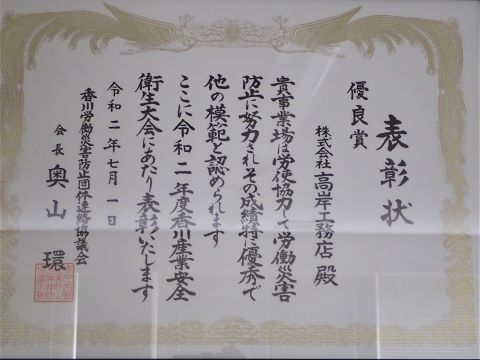 表彰状
優良賞
株式会社高岸工務店 殿
貴事業場は労使協力して労働災害
防止に努力されその成績特に優秀で
他の模範と認められます
ここに令和二年度香川産業安全
衛生大会にあたり表彰いたします
令和二年七月一日
香川労働災害防止団体連絡協議会
会長 奥山 環